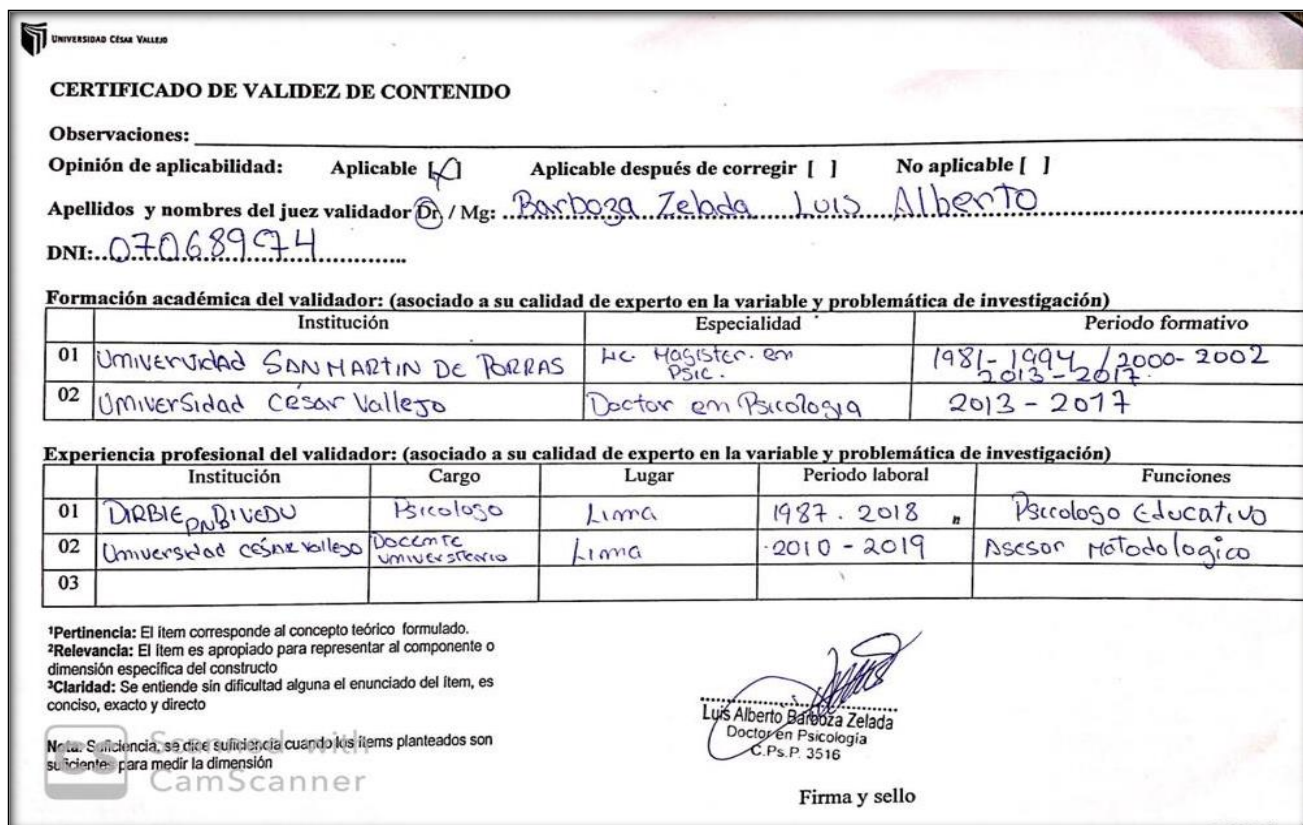 UNIVERSIDAD CÉSAR VALLEJO
CERTIFICADO DE VALIDEZ DE CONTENIDO
Observaciones:
Opinión de aplicabilidad: Aplicable [ ] Aplicable después de corregir [ ] No aplicable [ ]
Apellidos y nombres del juez validador Dr. / Mg: Barboza Zelada Luis Alberto
DNI: 07068974
Formación académica del validador: (asociado a su calidad de experto en la variable y problemática de investigación)
Institución Especialidad Periodo formativo
01 Universidad SAN MARTIN DE PORRAS Lic. Magister. en Psic. 1981-1994 / 2000-2002 2013-2017.
02 Universidad César Vallejo Doctor en Psicologia 2013-2017
Experiencia profesional del validador: (asociado a su calidad de experto en la variable y problemática de investigación)
Institución Cargo Lugar Periodo laboral Funciones
01 DIRBIE PNP DIVEDU Psicologo Lima 1987. 2018 Psicologo Educativo
02 Universidad CÉSAR Vallejo Docente Universitario Lima 2010-2019 Asesor Metodologico
03
¹Pertinencia: El ítem corresponde al concepto teórico formulado.
²Relevancia: El ítem es apropiado para representar al componente o
dimensión específica del constructo
³Claridad: Se entiende sin dificultad alguna el enunciado del ítem, es
conciso, exacto y directo
Nota: Suficiencia, se dice suficiencia cuando los ítems planteados son
suficientes para medir la dimensión
CS Scanned with
CamScanner
Luis Alberto Barboza Zelada
Doctor en Psicología
C.Ps.P. 3516
Firma y sello